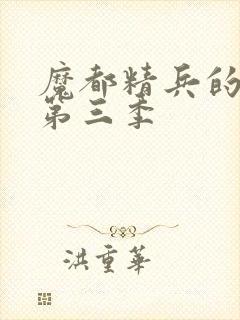 魔都精兵的
第三季
洪重華